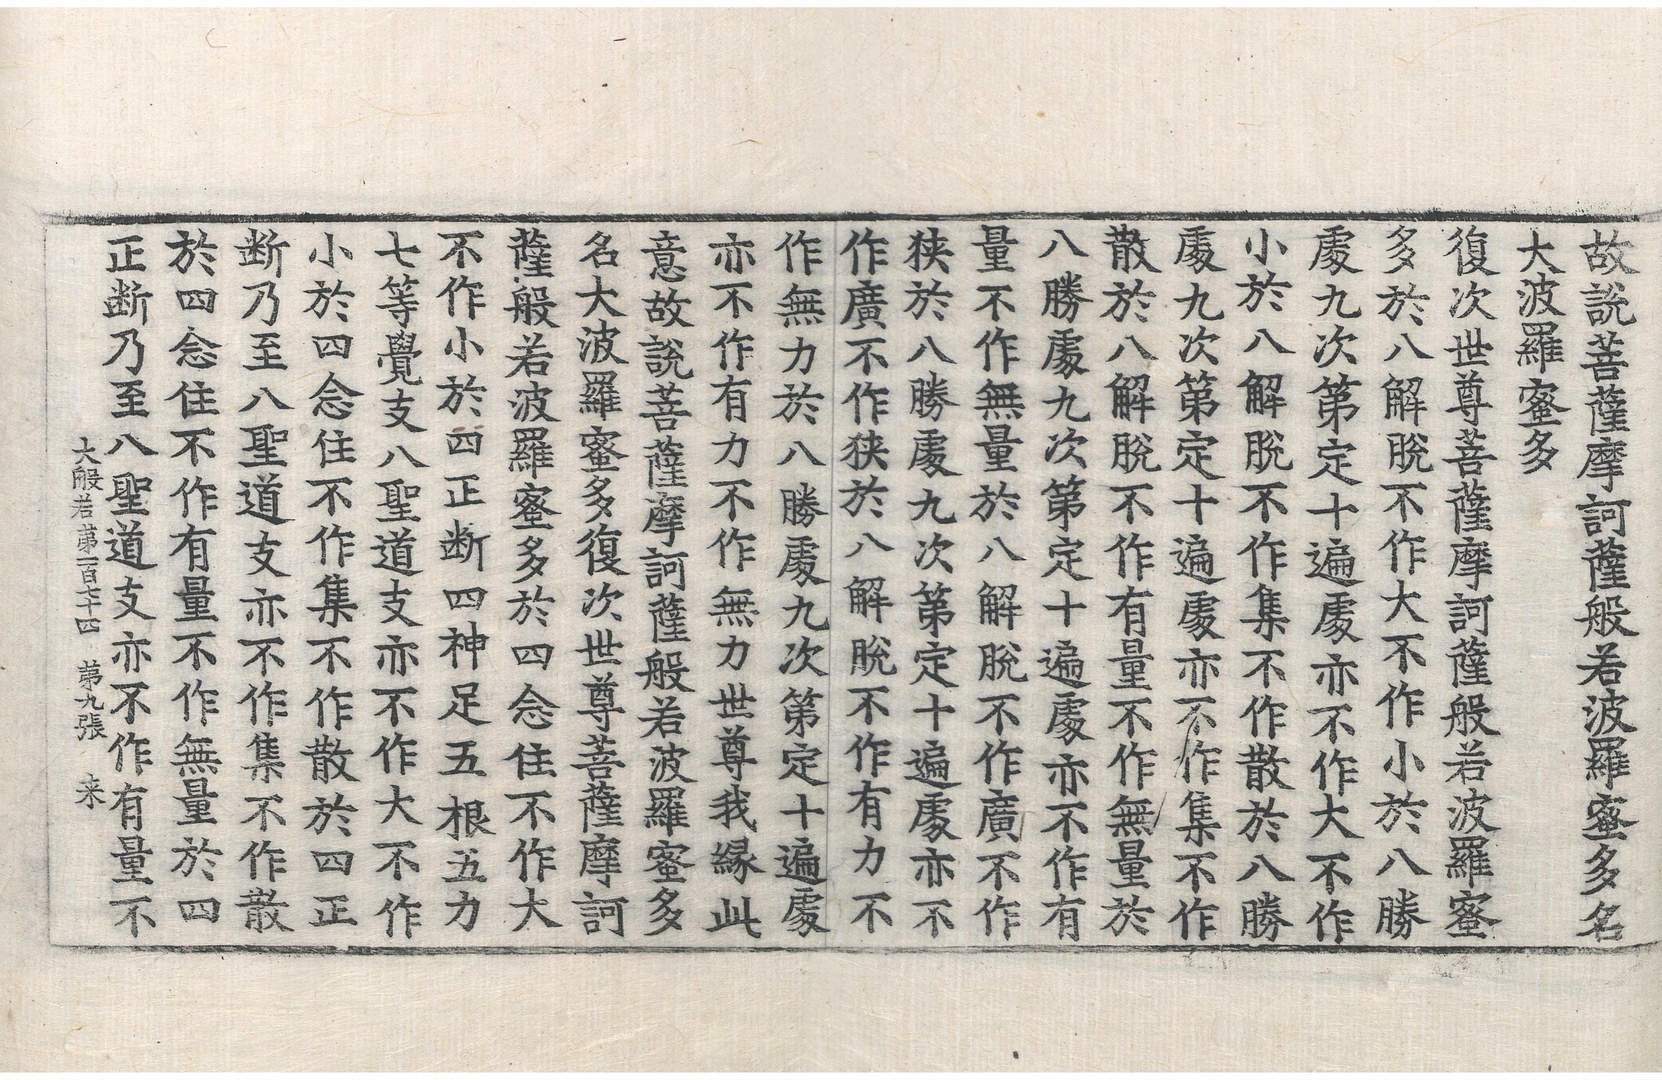 故說菩薩摩訶薩般若波羅蜜多名
大波羅蜜多
復次世尊菩薩摩訶薩般若波羅蜜
多於八解脫不作大不作小於八勝
處九次第定十遍處亦不作大不作
小於八解脫不作集不作散於八勝
處九次第定十遍處亦不作集不作
散於八解脫不作有量不作無量於
八勝處九次第定十遍處亦不作有
量不作無量於八解脫不作廣不作
狹於八勝處九次第定十遍處亦不
作廣不作狹於八解脫不作有力不
作無力於八勝處九次第定十遍處
亦不作有力不作無力世尊我緣此
意故說菩薩摩訶薩般若波羅蜜多
名大波羅蜜多復次世尊菩薩摩訶
薩般若波羅蜜多於四念住不作大
不作小於四正断四神足五根五力
七等覺支八聖道支亦不作大不作
小於四念住不作集不作散於四正
断乃至八聖道支亦不作集不作散
於四念住不作有量不作無量於四
正断乃至八聖道支亦不作有量不
大般若第一百七十四 第九張 来